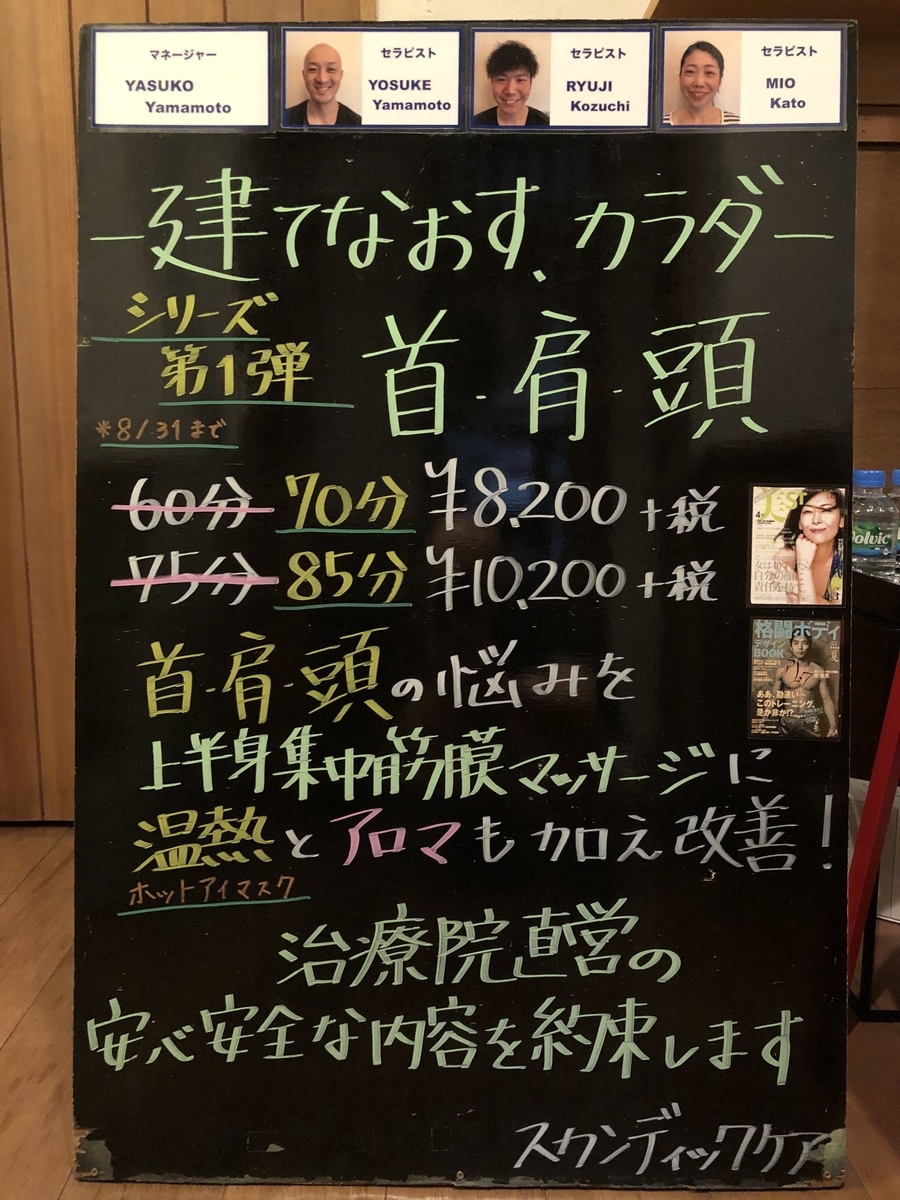 マネージャー
YASUKO
Yamamoto
セラピスト
YOSUKE
Yamamoto
セラピスト
RYUJI
Kozuchi
セラピスト
MIO
Kato
ー建てなおす、カラダー
シリーズ
第1弾
首-肩-頭
*8/31まで
60分 70分 ¥8,200+税
75分 85分 ¥10,200+税
首-肩-頭の悩みを
上半身集中筋膜マッサージに
温熱とアロマも加え改善!
ホットアイマスク
治療院直営の
安心安全な内容を約束します
スカンディックケア
格闘ボディ
デザイン
BOOK
ああ、勘違い…
このトレーニング、
是か非か!?
volvic